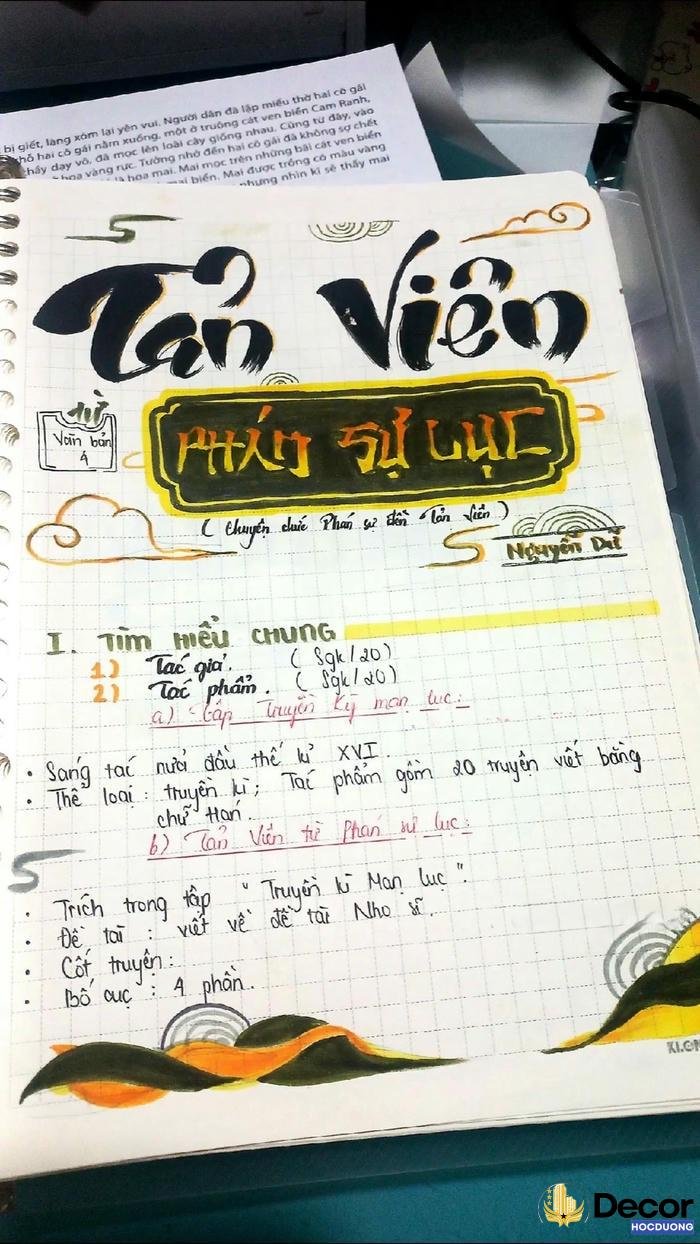 bị giết, làng xóm lại yên vui. Người dân đã lập miếu thờ hai cô gái
hỗ hai cô gái nằm xuống, một ở truông cát ven biển Cam Ranh,
hấy dạy võ, đã mọc lên loài cây giống nhau. Cũng từ đây, vào
hoa vàng rực. Tưởng nhớ đến hai cô gái đã không sợ chết
là hoa mai. Mai mọc trên những bãi cát ven biển
mai biển. Mai được trồng có màu vàng
nhưng nhìn kĩ sẽ thấy mai
Tản Viên
TỪ
Văn bản
4
PHÁN SỰ LỤC
( Chuyện chức Phán sự đền Tản Viên )
Nguyễn Dữ
I. TÌM HIỂU CHUNG
1) Tác giả. ( Sgk/20)
2) Tác phẩm. ( Sgk/20)
a) Tập Truyền Kỳ mạn lục:
• Sáng tác nửa đầu thế kỉ XVI.
• Thể loại: truyền kì; Tác phẩm gồm 20 truyện viết bằng
chữ Hán.
b) Tản Viên từ Phán sự lục:
• Trích trong tập " Truyền kì Mạn lục ".
• Đề tài : viết về đề tài Nho sĩ.
• Cốt truyện:
• Bố cục : 4 phần.
Decor
HOCDUONG